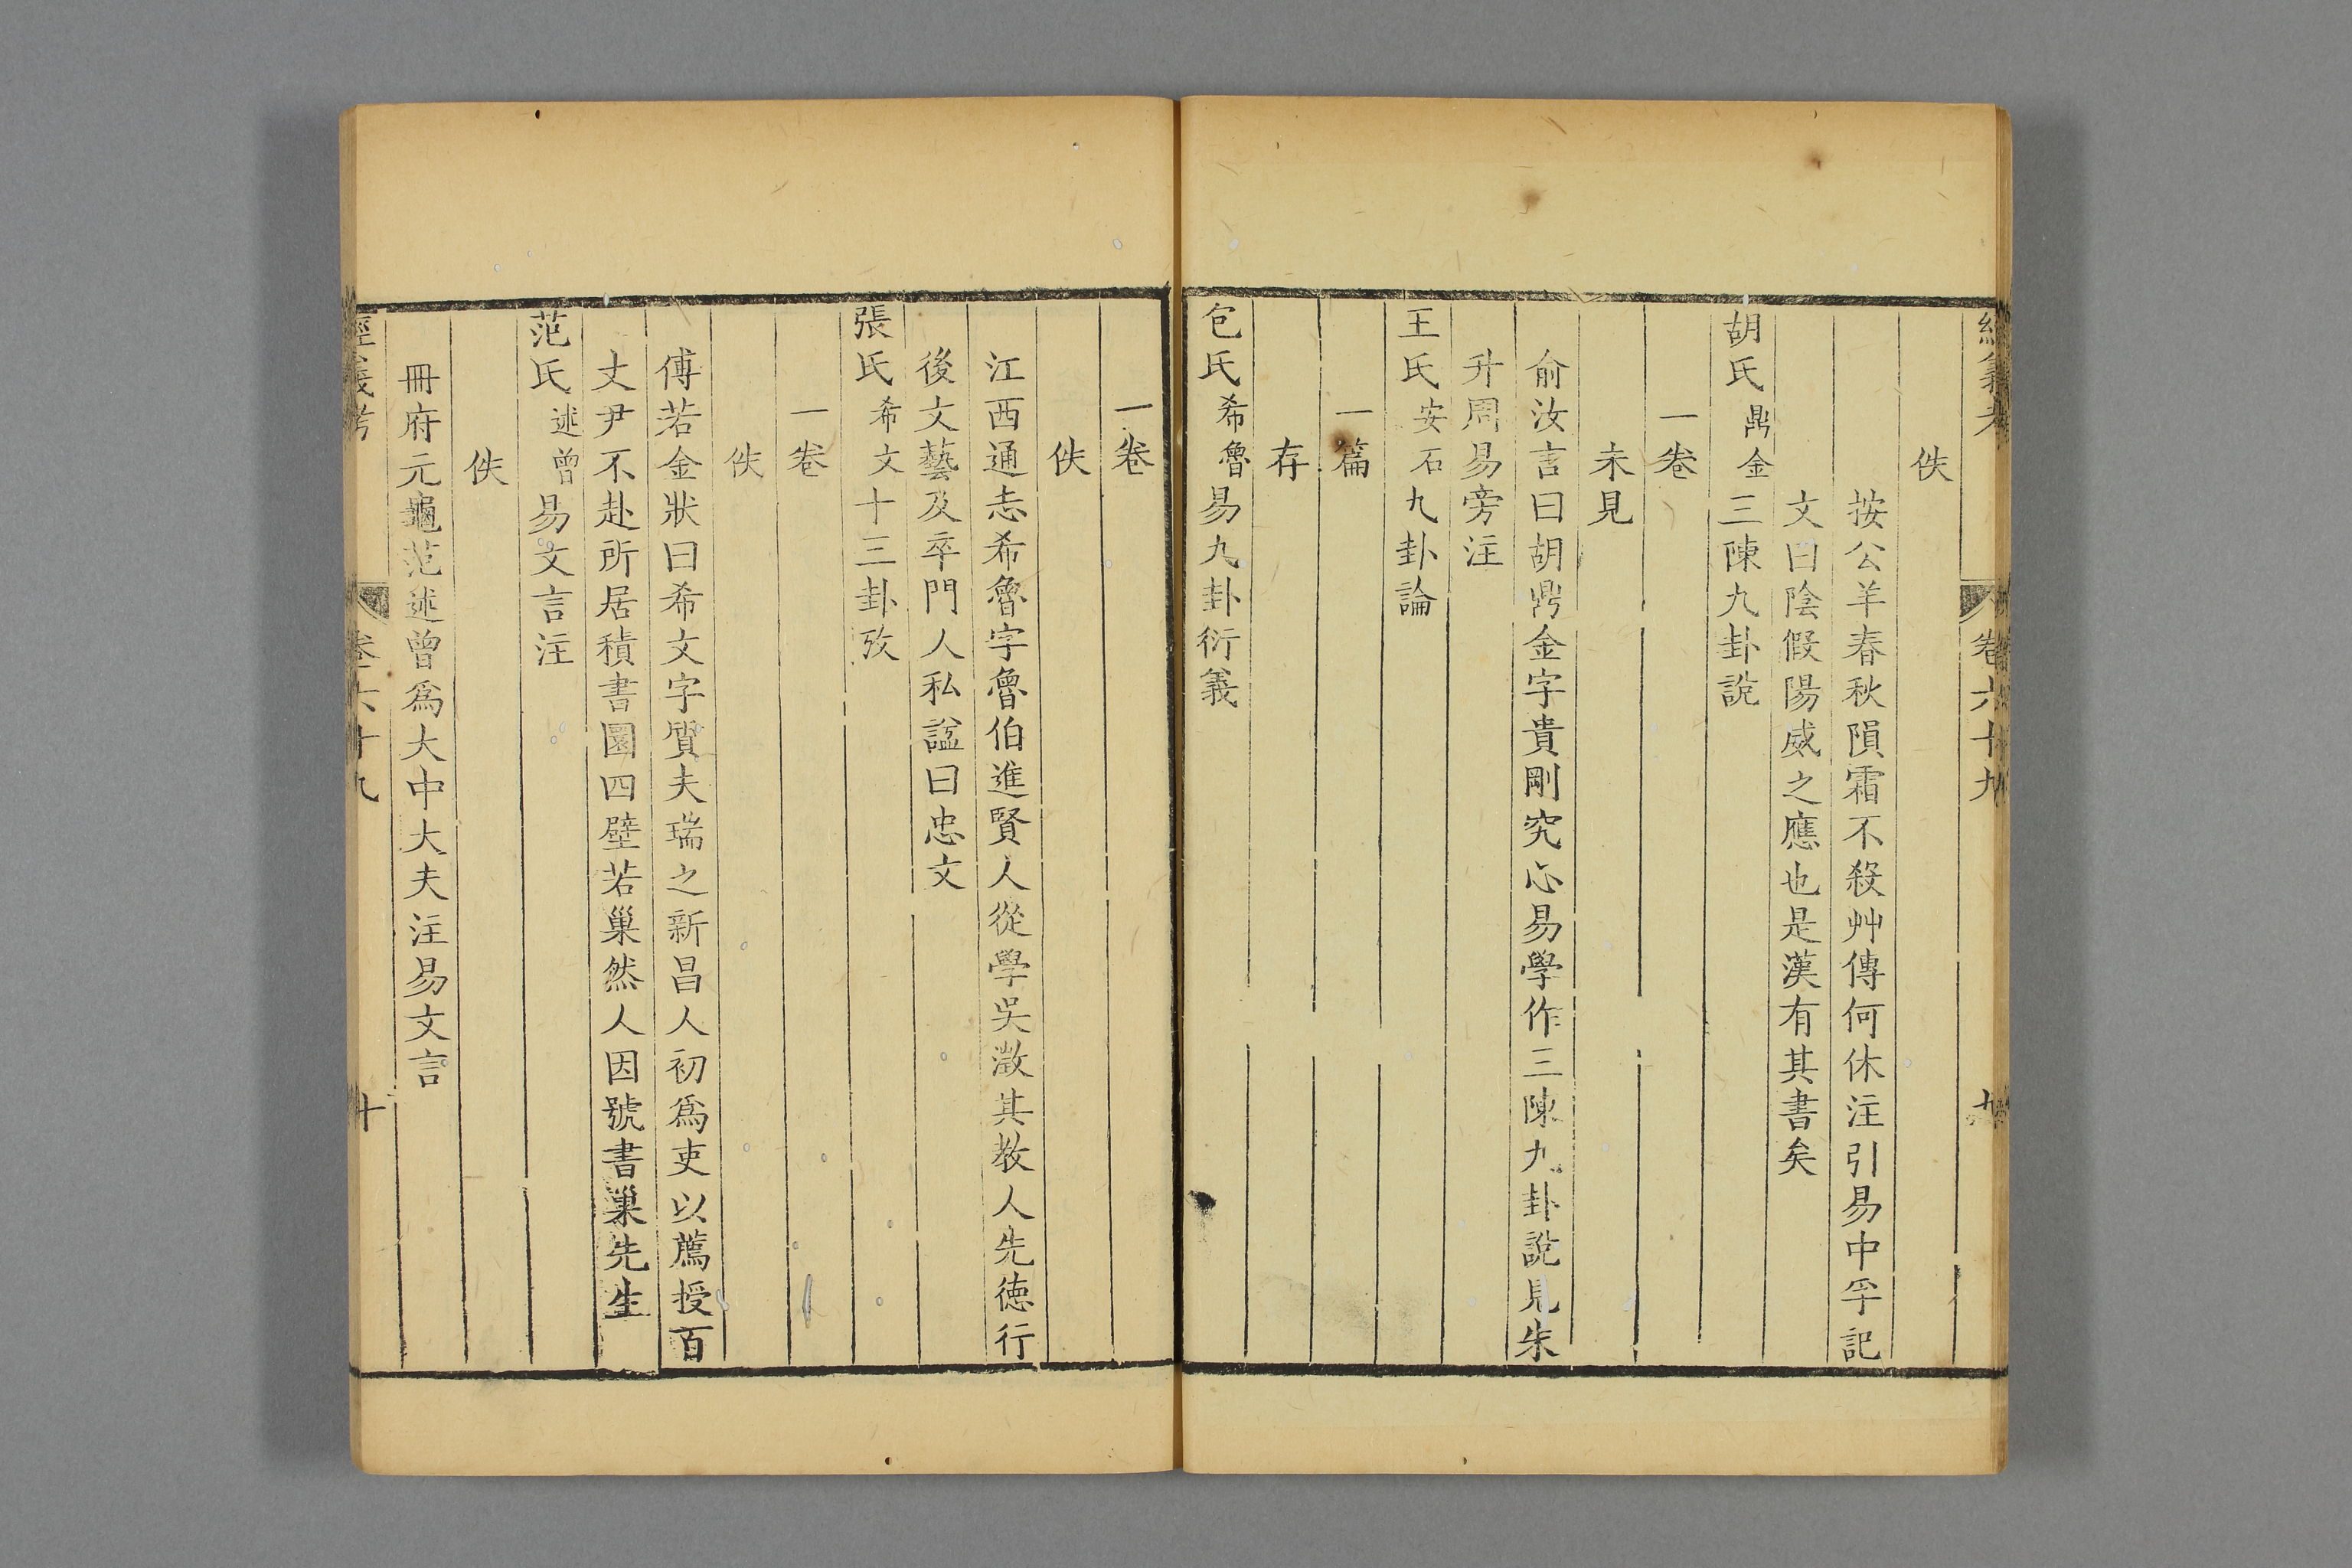 經義考 卷六十九 九
佚
按公羊春秋隕霜不殺艸傳何休注引易中孚記
文曰陰假陽威之應也是漢有其書矣
胡氏鼎金三陳九卦說
一卷
未見
俞汝言曰胡鼎金字貴剛究心易學作三陳九卦說見朱
升周易旁注
王氏安石九卦論
一篇
存
包氏希魯易九卦衍義
一卷
佚
江西通志希魯字魯伯進賢人從學吳澂其教人先德行
後文藝及卒門人私諡曰忠文
張氏希文十三卦攷
一卷
佚
傅若金狀曰希文字質夫瑞之新昌人初爲吏以薦授百
丈尹不赴所居積書園四壁若巢然人因號書巢先生
范氏述曾易文言注
佚
冊府元龜范述曾爲大中大夫注易文言
經義考 卷六十九 十